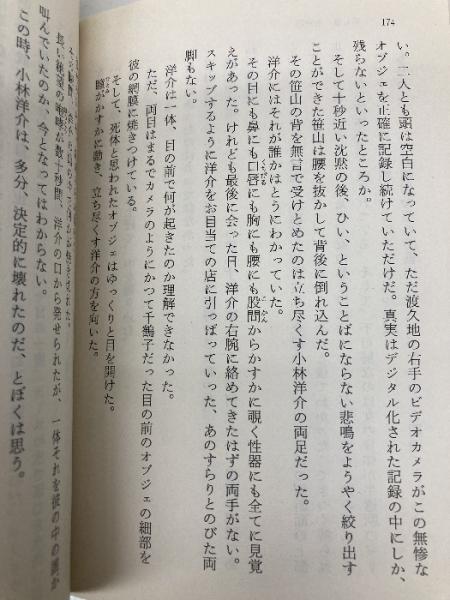 174
い。二人とも頭は空白になっていて、ただ渡久地の右手のビデオカメラがこの無惨な
オブジェを正確に記録し続けていただけだ。真実はデジタル化された記録の中にしか、
残らないといったところか。
そして十秒近い沈黙の後、ひい、ということばにならない悲鳴をようやく絞り出す
ことができた笹山は腰を抜かして背後に倒れ込んだ。
その笹山の背を無言で受けとめたのは立ち尽くす小林洋介の両足だった。
洋介にはそれが誰かはとうにわかっていた。
その目にも鼻にも口唇にも胸にも腰にも股間からかすかに覗く性器にも全てに見覚
えがあった。けれども最後に会った日、洋介の右腕に絡めてきたはずの両手がない。
スキップするように洋介をお目当ての店に引っぱっていった、あのすらりとのびた両
脚もない。
洋介は一体、目の前で何が起きたのか理解できなかった。
ただ、両目はまるでカメラのようにかつて千鶴子だった目の前のオブジェの細部を
彼の網膜に焼きつけている。
そして、死体と思われたオブジェはゆっくりと目を開けた。
瞳がかすかに動き、立ち尽くす洋介の方を向いた。
数十秒間、洋介の口から発せられたが、一体それを彼の中の誰が
叫んでいたのか、今となってはわからない。
この時、小林洋介は、多分、決定的に壊れたのだ、とぼくは思う。